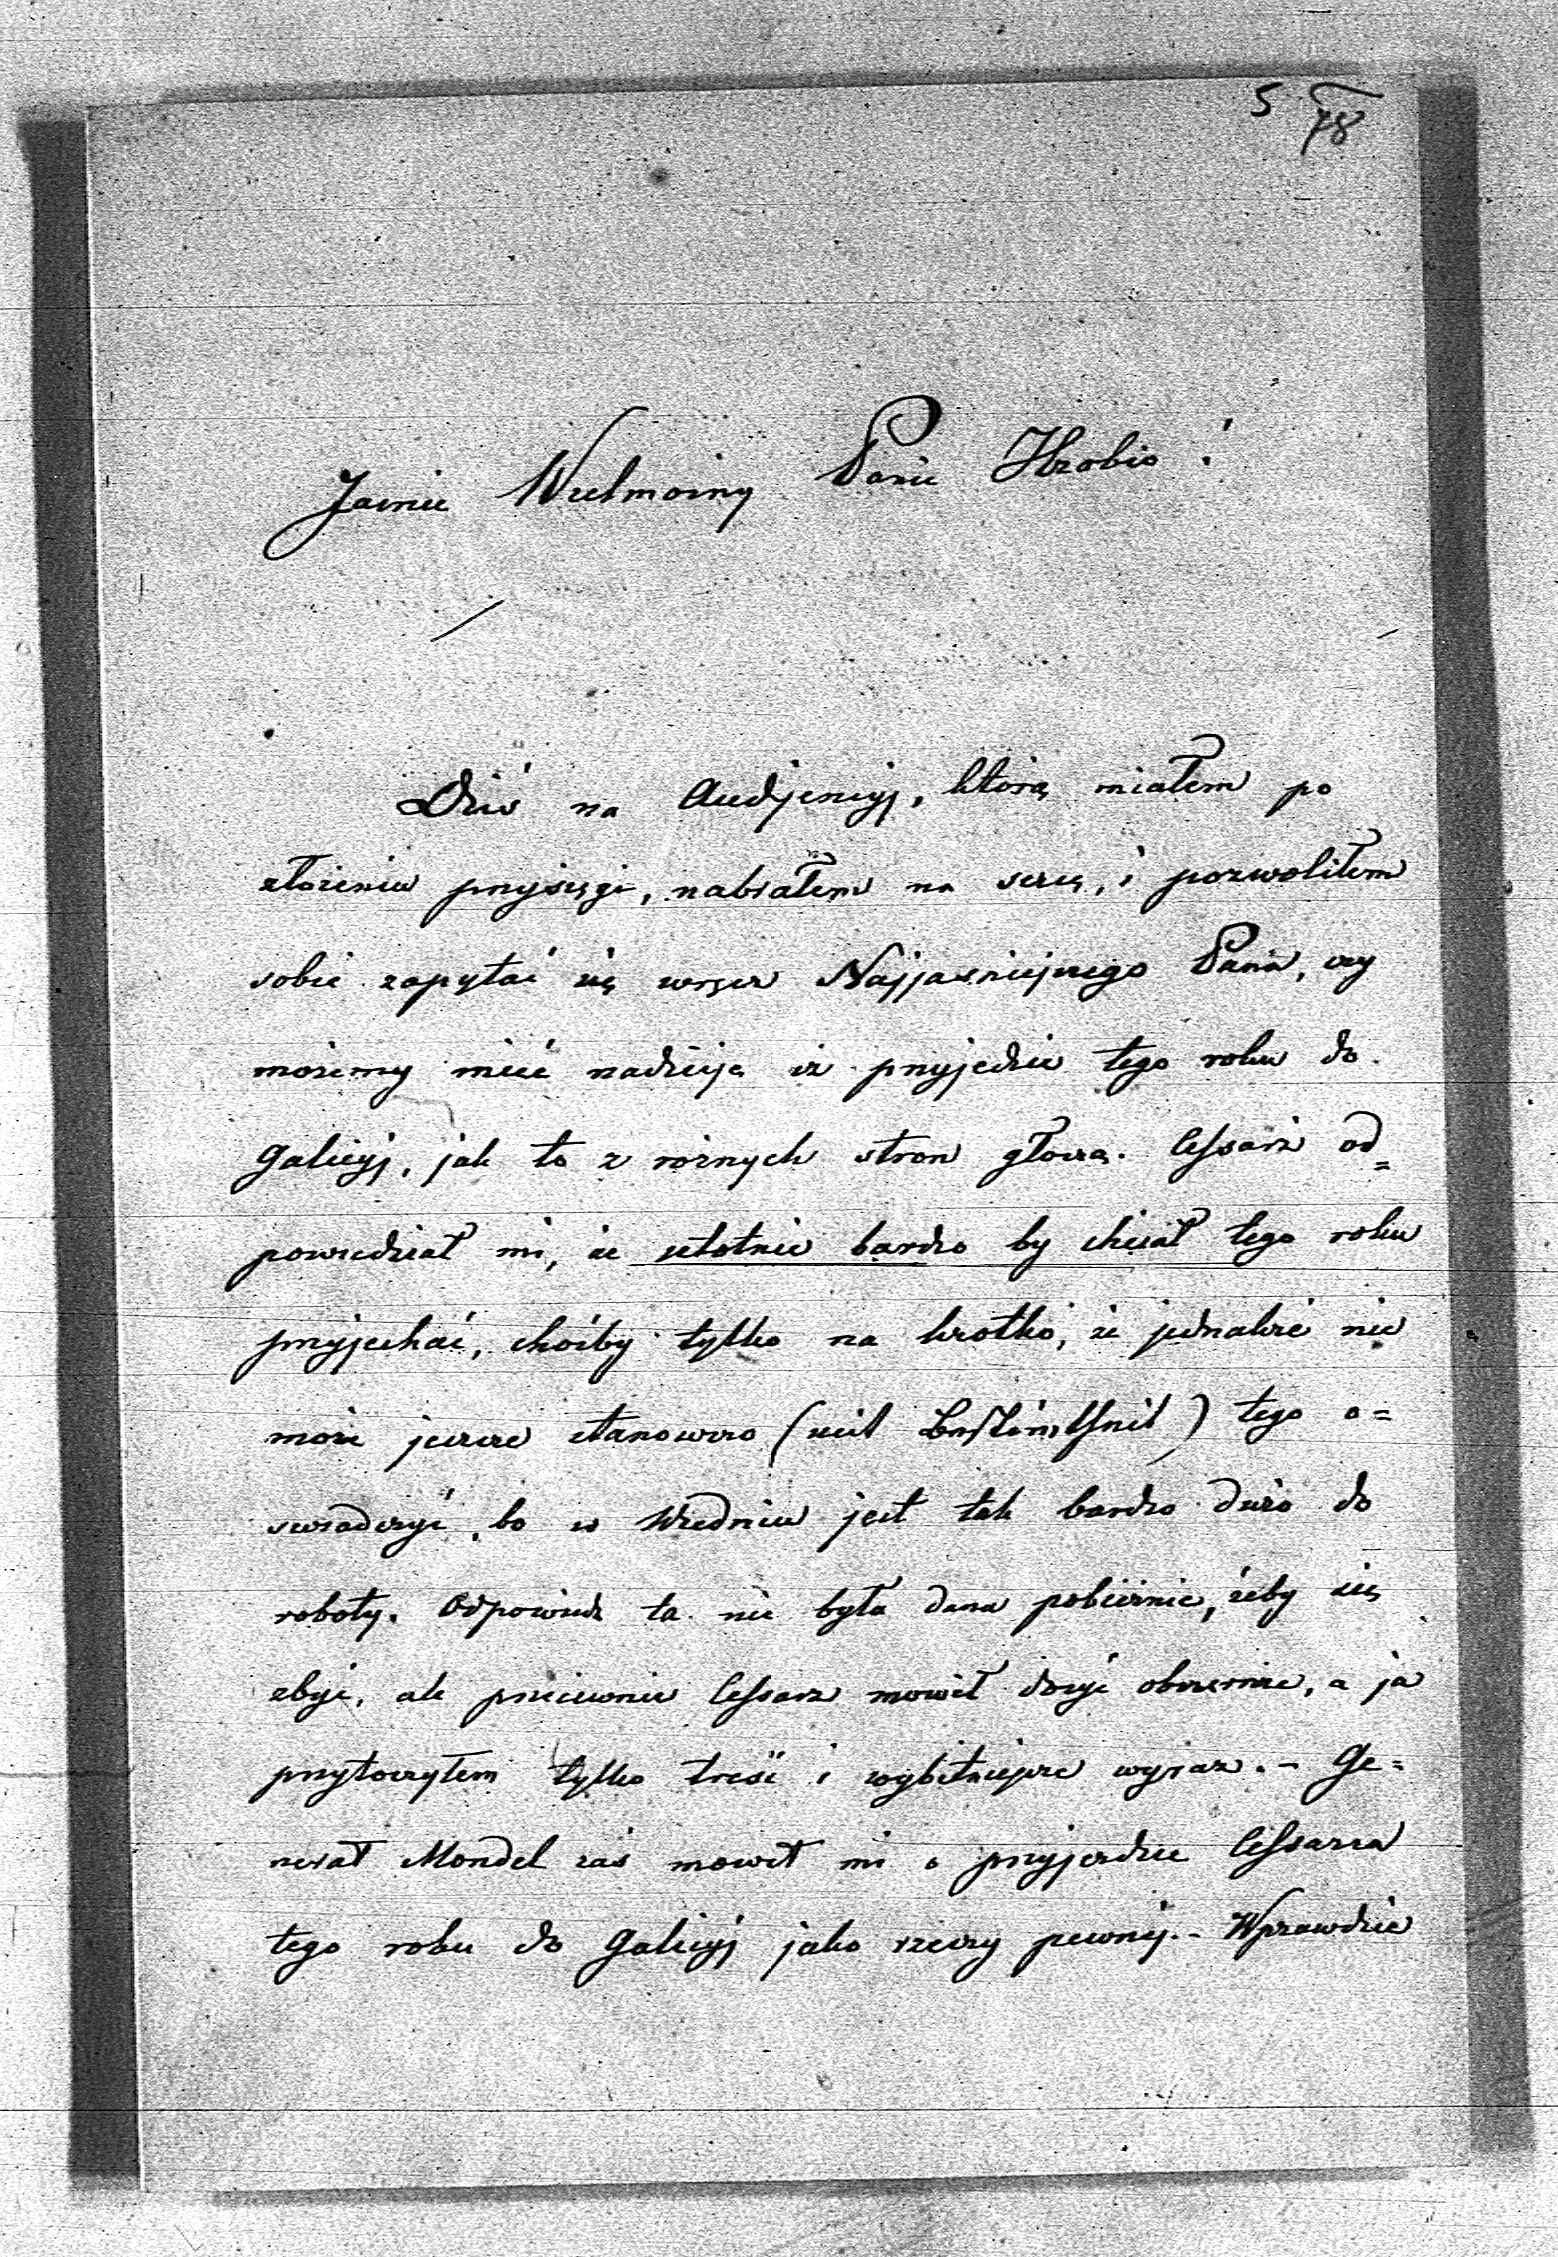 5 78
Jaśnie Wielmożny Panie Hrabio!
Dziś na Audjencyj, którą miałem po
złożeniu przysięgi, nabrałem na serię, i pozwoliłem
sobie zapytać się wręcz Najjaśniejszego Pana, czy
możemy mieć nadzieję iż przyjedzie tego roku do
Galicyj, jak to z rożnych stron głoszą. Cessarz od=
powiedział mi, że istotnie bardzo by chciał tego roku
przyjechać, choćby tylko na krotko, że jednakże nie
może jeszcze stanowczo (mit Bestimtheit) tego o=
swiadczyć, bo w Wiedniu jest tak bardzo dużo do
roboty. Odpowiedź ta nie była dana pobieżnie, żeby się
zbyć, ale przeciwnie Cessarz mowił dosyć obszernie, a ja
przytoczyłem tylko treść i wybitniejsze wyraz. – Ge=
nerał Mondel zaś mowił mi o przyjezdzie Cessarza
tego roku do Galicyj jako rzeczy pewnéj. – Wprawdzie